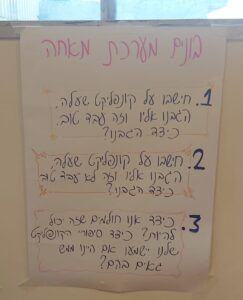 בונים מערכת מאחה
1. חישבו על קונפליקט שעלה,
הגבנו אליו וזה עבד טוב.
כיצד הגבנו?
2. חישבו על קונפליקט שעלה,
הגבנו אליו וזה לא עבד טוב
כיצד הגבנו?
3. כיצד אנו חולמים שזה יכול
להיות? כיצד סיפורי הקונפליקט
שלנו ישמעו אם היינו ממש
גאים בהם?